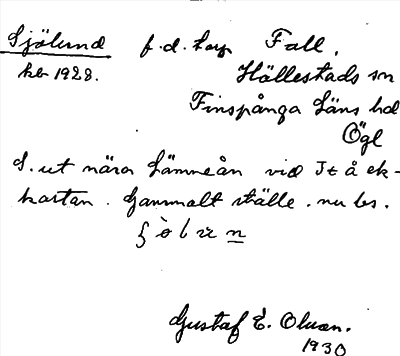 Sjölund f.d. torp Fall.
kb 1928. Hällestads sn
Finspånga läns hd
Ögl
S. ut nära Lämneån vid It å ek-
kartan. Gammalt ställe. nu bs.
Gustaf E. Olsson.
1930